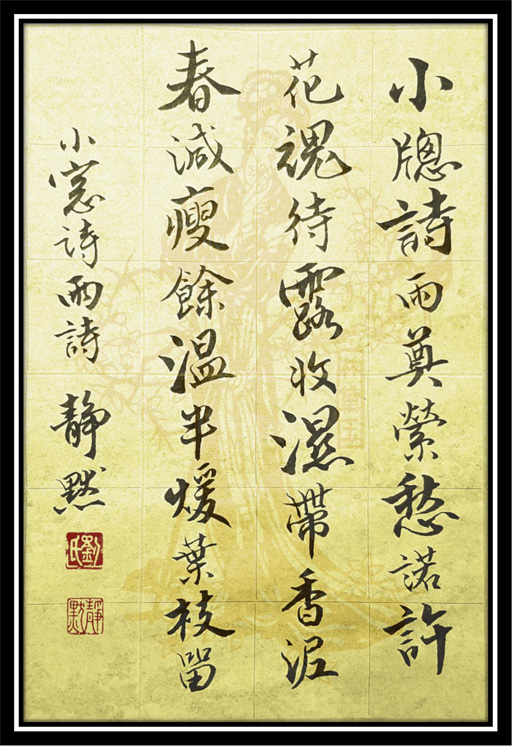 小牕詩雨奠縈愁諾許
花魂待露收濕帶香泥
春減瘦餘溫半煖葉枝留
小窓詩雨詩 靜默
劉氏
靜默